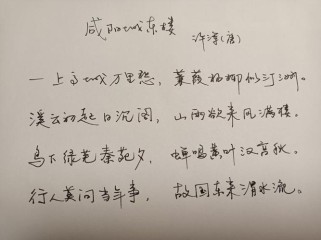 咸阳城东楼
许浑(唐)
一上高城万里愁，蒹葭杨柳似汀洲。
溪云初起日沉阁，山雨欲来风满楼。
鸟下绿芜秦苑夕，蝉鸣黄叶汉宫秋。
行人莫问当年事，故国东来渭水流。